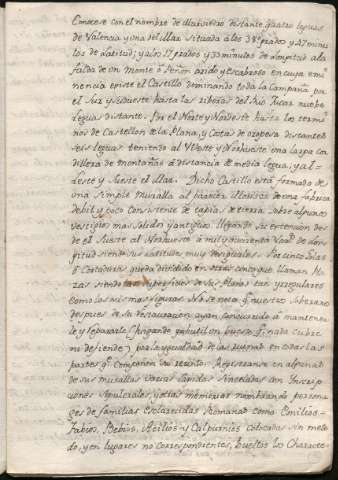 Conocese con el nombre de Murviedro distante quatro leguas
de Valencia y una del Mar. Situada a los 39 grados y 47 minu
tos de Latitud; y a los 17 grados y 33 minutos de Longitud a la
falda de un monte ó Peñon arido y escabroso en cuya emi
nencia existe el Castillo dominando toda la Campaña por
el Sur y sudueste hasta las riberas del Rio Jucar nuebe
leguas distante. Por el Norte y Nordeste hasta los termi
nos de Castellon de la Plana, y Costas de oropesa distante
seis leguas teniendo al Veste y Norhueste una larga cor
dillera de montañas á distancia de media legua; y al
leste y Sueste el Mar. Dicho Castillo está formado de
una simple muralla al parecer de una fabrica
debil y poco consistente de tapia de tierra sobre algunos
vestigios mas solidos y antiguos llegando su extension des
de el Sueste al Norhueste a mil y quarenta de lon
gitud siendo sus latitudes muy desiguales. Por cinco
ó Cortaduras queda dividido en otras que llaman Pla
zas siendo las superficies de sus planos tan irregulares
como las mismas figuras. No se nota q.e nuestros Soberanos
despues de su restauracion ayan concurrido á mantener
le y repararle
ni defiende) por la ygualdad de las ruinas en todas las
partes q.e componen su recinto. Representanse en algunas
de sus murallas varias lapidas sinceladas con Inscrip
ciones sepulcrales, y otras memorias nombrando persona
ges de familias esclarecidas Romanas como Emilios
Fabios, Bebios, Acilios y Calpurnios colocadas sin meto
do, y en lugares no correspondientes, bueltos los Characte-